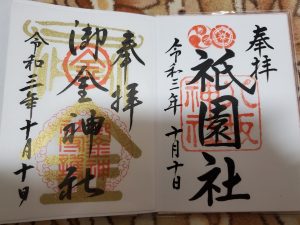 奉拝
祇園社
令和三年十月十日
奉拝
御金神社
令和三年十月十日